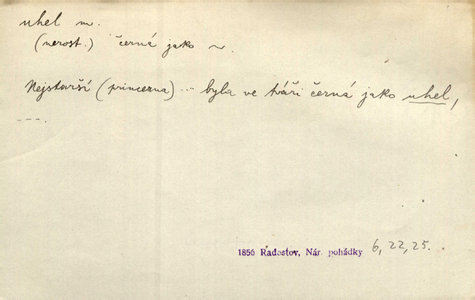 uhel m.
(nerost.) černá jako ~.
Nejstarší (princezna) ... byla ve tváři černá jako uhel,
---.
1856 Radostov, Nár. pohádky 6, 22, 25.